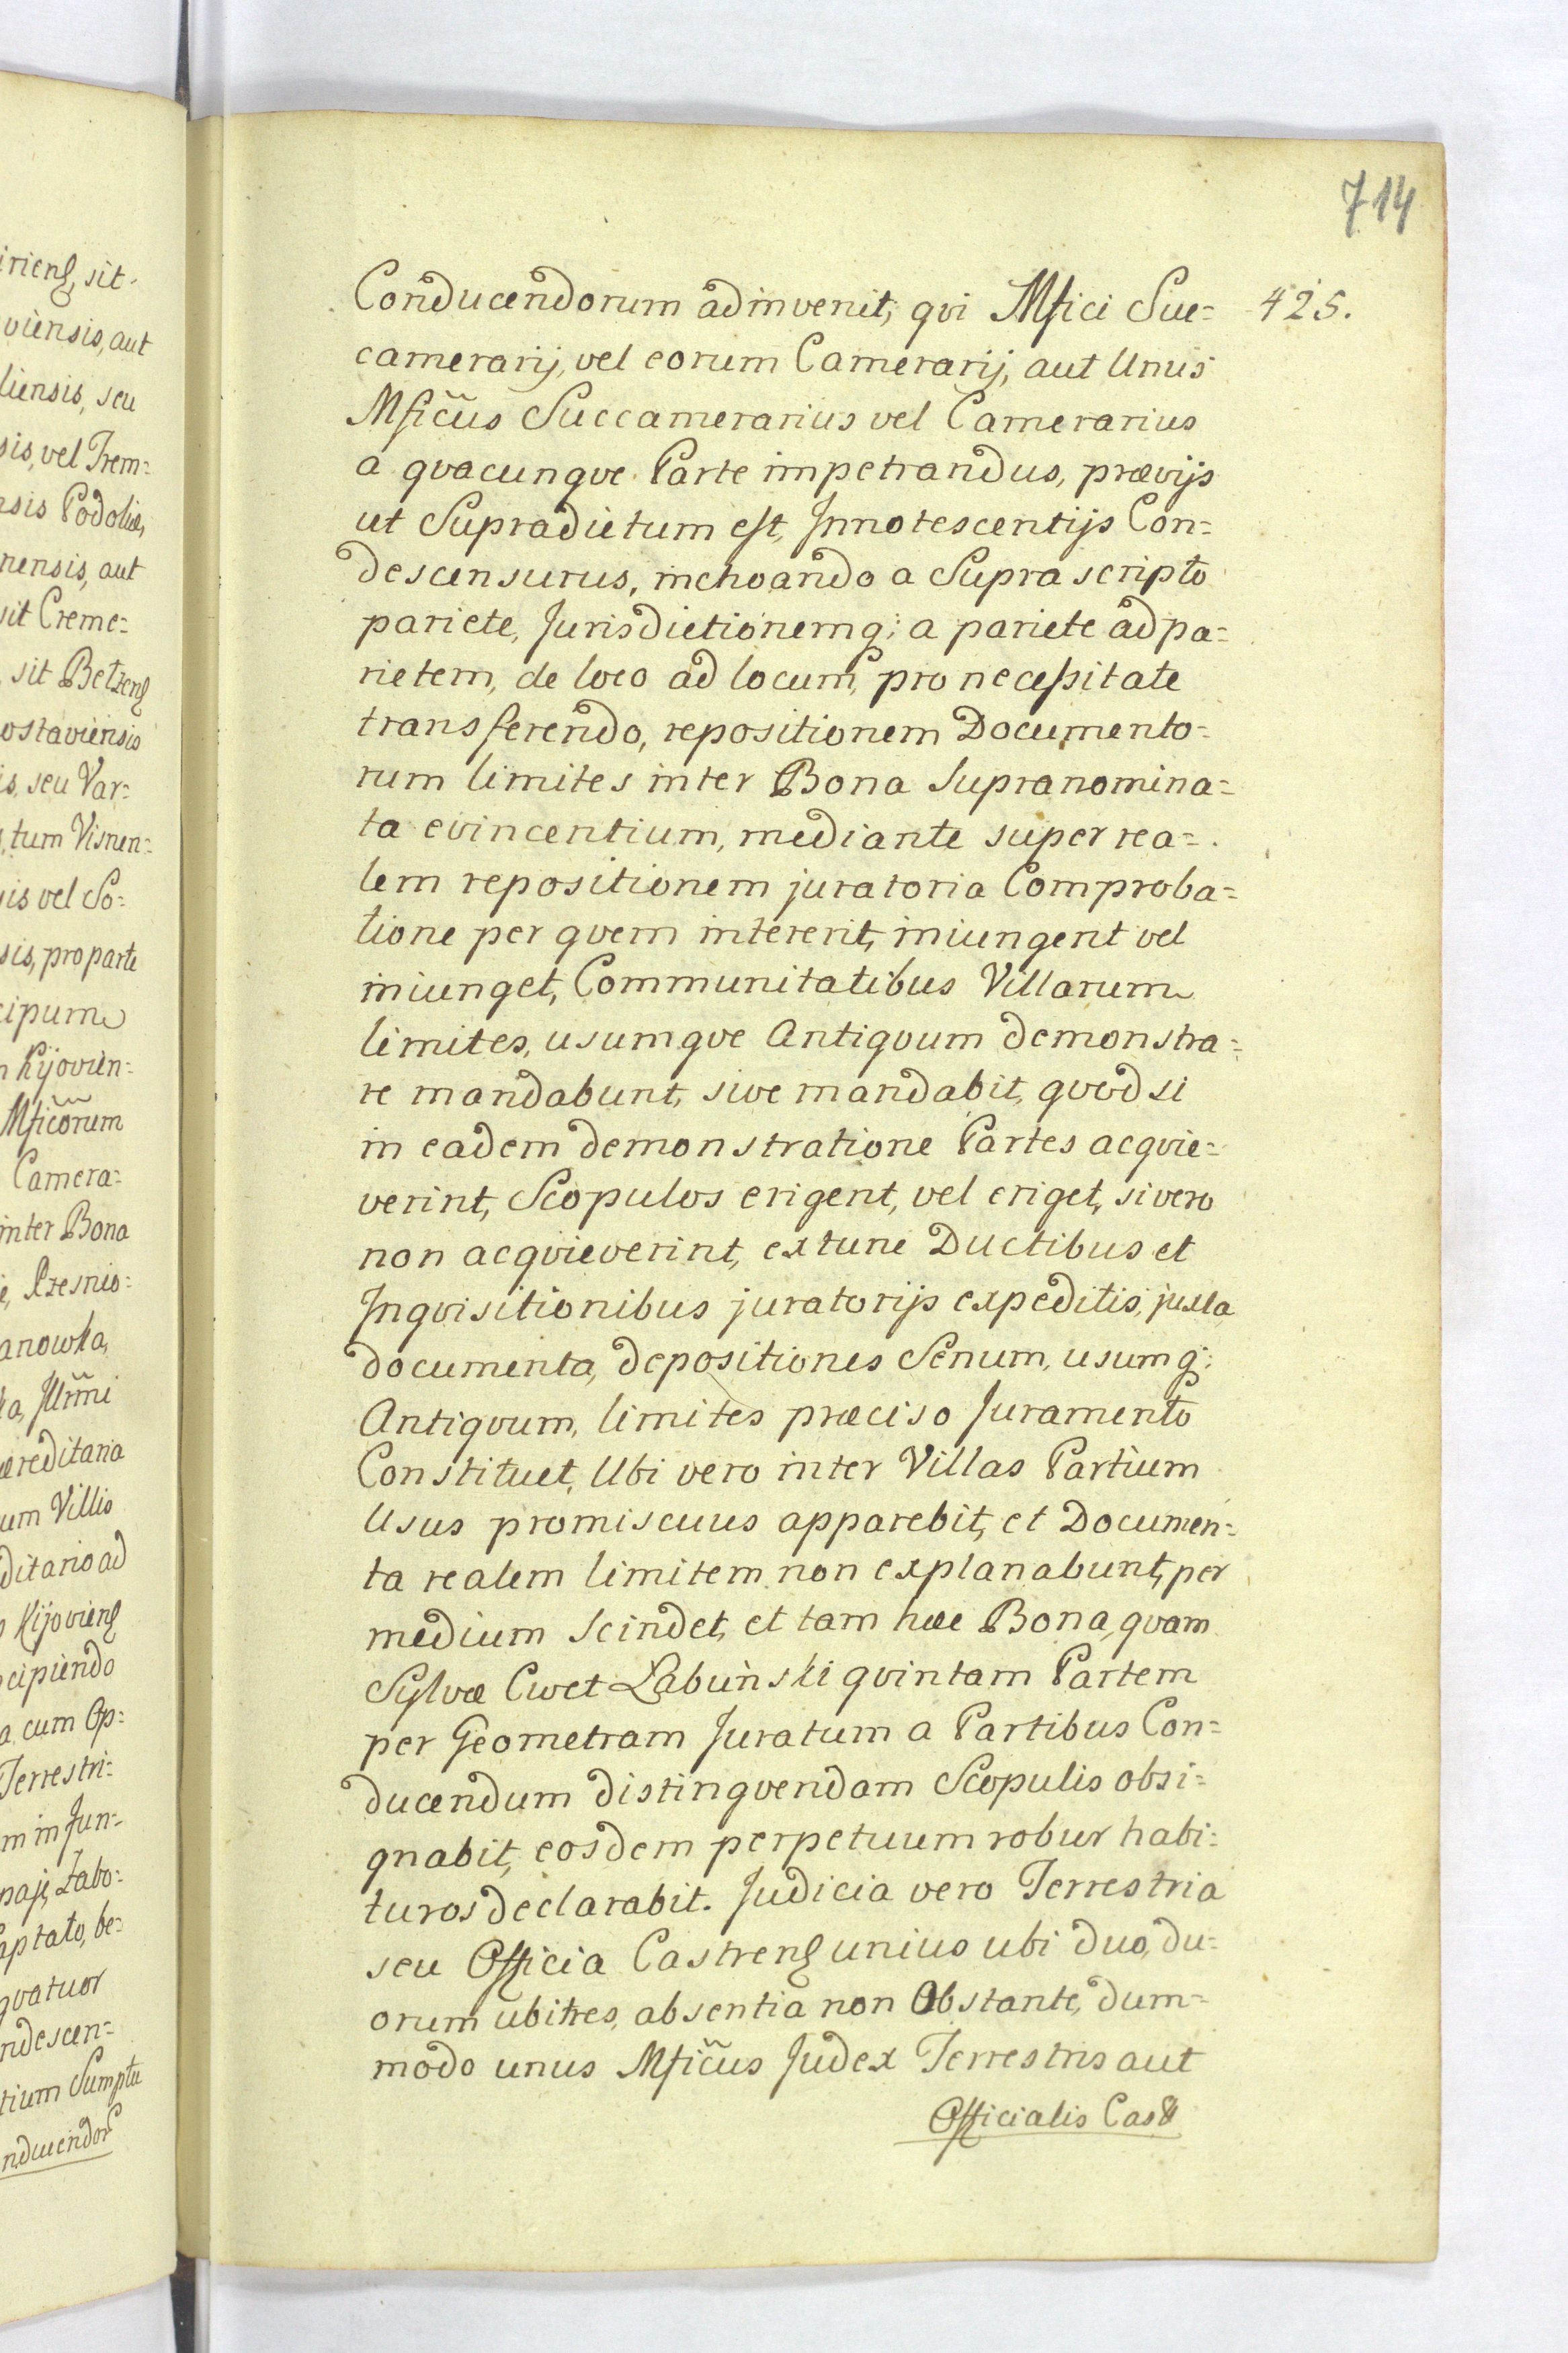 714
425.
Conducendorum adinvenit, qvi Mfici Suc=
camerarij, vel eorum Camerarij, aut Unus
Mficus Succamerarius vel Camerarius
a qvacunqve Parte impetrandus, prævijs
ut Supradictum est, Innotescentijs Con=
descensurus, inchoando a Supra scripto
pariete, Jurisdictionemq; a pariete ad pa=
rietem, de loco ad locum, pro necessitate
transferendo, repositionem Documento=
rum limites inter Bona Supranomina=
ta evincentium, mediante super rea=
lem repositionem juratoria Comproba=
tione per qvem intererit, iniungent vel
iniunget, Communitatibus Villarum
limites, usumqve Antiqvum demonstra=
re mandabunt, sive mandabit, qvod si
in eadem demonstratione Partes acqvie=
verint, Scopulos erigent, vel eriget, si vero
non acqvieverint, extunc Ductibus et
Inqvisitionibus juratorijs expeditis, juxta
documenta, depositiones Senum, usumq;
Antiqvum, limites præciso Juramento
Constituet, Ubi vero inter Villas Partium
Usus promiscuus apparebit, et Documen=
ta realem limitem non explanabunt, per
medium scindet, et tam hæc Bona, qvam
Sylvæ Cwet Łabuński qvintam Partem
per Geometram Juratum a Partibus Con=
ducendum distingvendam Scopulis obsi=
gnabit, eosdem perpetuum robur habi=
turos declarabit. Judicia vero Terrestria
seu Officia Castrens unius ubi duo, du=
orum ubi tres, absentia non Obstante, dum=
modo unus Mficus Judex Terrestris aut
Officialis Cast
iriens, sit
viensis, aut
liensis, seu
sis, vel Trem=
nsis Podoliæ,
nensis, aut
sit Creme=
sit Betzens
ostaviensis
is, seu Var=
, tum Visnen=
sis vel So=
sis, pro parte
cipum
Kijovien=
Mficorum
Camera=
inter Bona
anowka,
a, Illrmi
æreditaria
um Villis
ditario ad
Kijoviens
cipiendo
a cum Op=
Terrestri=
m in Jun=
aptato, be=
qvatuor
ndescen=
tium Sumptu
nducendor